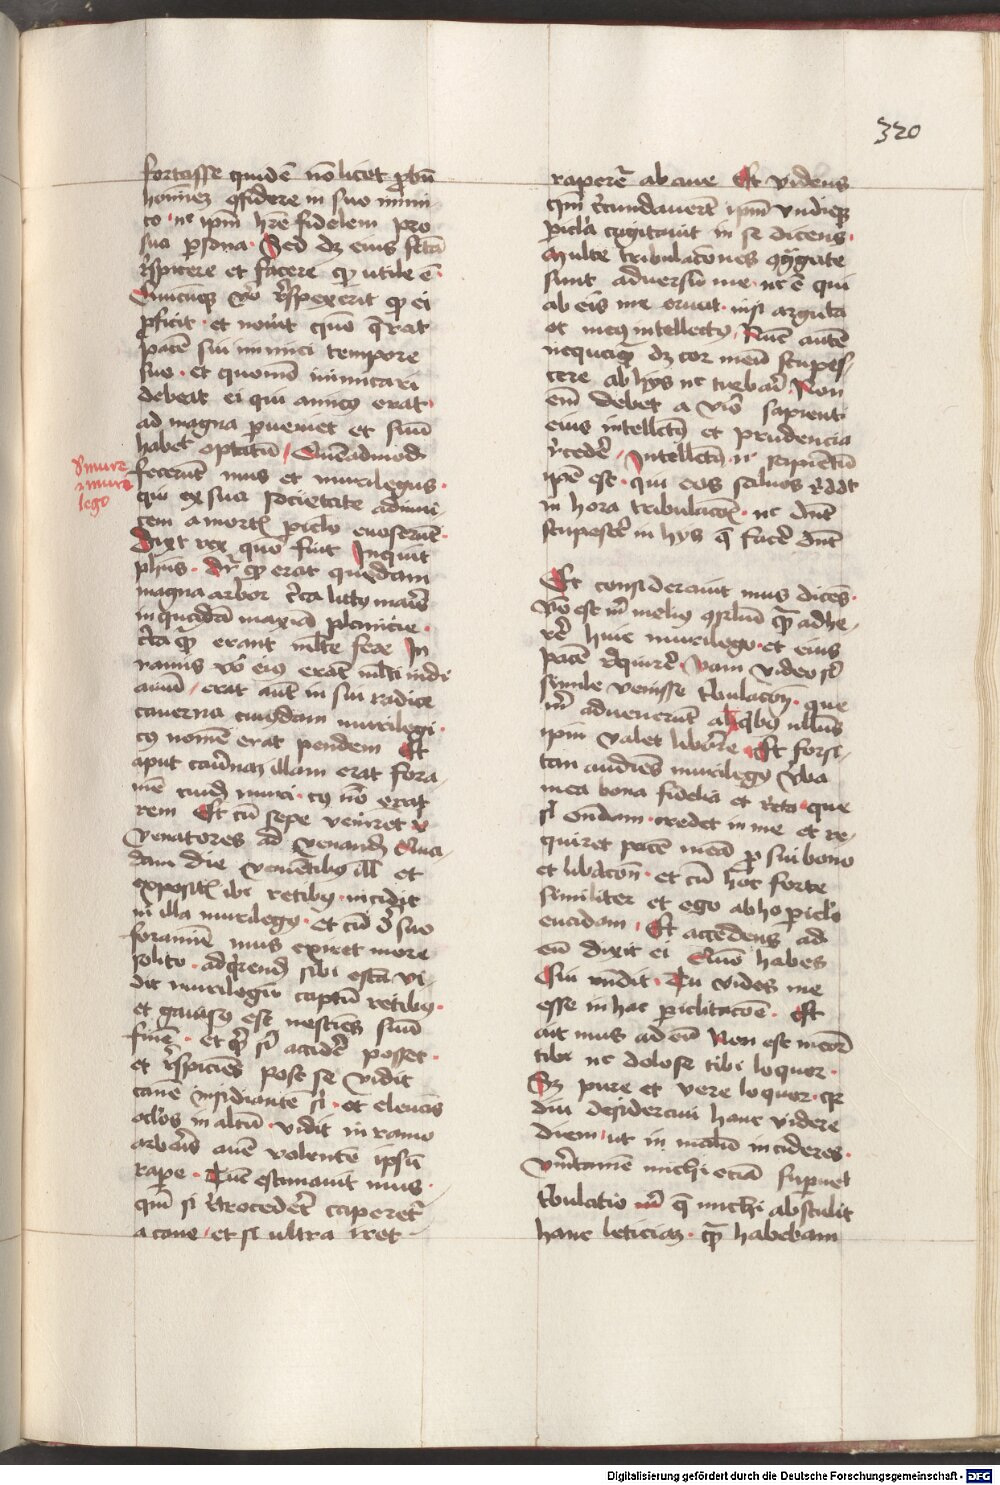 320
fortasse quidē nō licet ꝓbū
hominē ꝯfidere in suo inimi¬
co · nc ipm̄ hr̄e fidelem pro
sua ꝑsona · Sed dꝫ eius stctā
rꝰspicere et facere qꝫ utile ē ·
Quicūqꝫ vo᷑ rꝰspexerit qꝫ ei
ꝓficit · et nouit quō q̄rat
pacē sui inimici tempore
suo · et quomō inimicari
debeat ei qui amicꝰ erat ·
ad magna ꝑueniet et suū
habet optatū / Quēadmodū
de mure
et muri
lego
fecerūt mus et murilegus ·
qui ex sua societate adinui
cem a mort᷑ ꝑiclo euaserūt ·
Dixt rex quō fuit Inquit
phūs · Dr̄ qꝫ erat quedam
magna arbor cͣca littꝰ maris
in quadā maxīa planicie ·
cͣca quā erant mlte fere In
ramis vō eiꝰ erāt mlti nidi
auiū / erat aūt in sui radice
cauerna cuiꝰdam murilegi ·
cꝰ nomē erat pendem Et
aput cauͤnaꝫ illam erat fora¬
mē cuidꝫ muri · cꝰ nō erat
rem Et cū sepe venirēt
venatores ad venandū Qua
dam die venētibꝰ ill᷑ et
exposit᷑ ibi retibꝰ · incidit
in illa murilegꝰ · et cū de suo
foramīe mus exiret more
solito · ad q̄rendū sibi escā vi¬
dit murilegū captū retibꝰ ·
et gauisꝰ est nesciēs suū
finē · et qͥd si᷑ accidē posset ·
et rꝰspiciēs post se vidit
canē insidiantē si᷑ · et eleuās
oclos in altū · vidit in ramo
arboris auē volentē ipsū
rapꝰe · Tūc estimauit mus ·
qm̄ si rꝰtrocederet caperet᷑
a cane / et si ultra iret
raperet᷑ ab aue Et videns
qm̄ cͥcundauert᷑ ipm̄ vndiqꝫ
ꝑicla cogitauit in se dicens ·
Multe tribulacōnes ꝯgregate
sunt aduersū me · nc ē qui
ab eis me eruat · nisi arguta
et meꝰ intellectꝰ / Nūc autē
nequaqͣ dꝫ cor meū stupes¬
cere ab hijs nc turbari᷑ · Non
em̄ debet a viro sapienti
eius intellectꝰ et prudencia
rꝰcedere / Intellectꝰ nc sapientū
ipē est · qui eos saluos rꝰddit
in hora tribulacōis · nc dn̄t
stupescere in hijs q̄ facere dn̄t
Et considerauit mus dicēs ·
Nō est m̄ melius ꝯsiliū qͣ adhe¬
rere huic murilego · et eius
pacē rꝰquirere · Nam video si᷑
simile venisse tribulacōnē · que
m̄ aduenerūt a qͥbꝰ nullus
ipm̄ valet liberare · Et forsi¬
tan audiens murilegꝰ verba
mea bona fidelia et rꝰcta · que
si᷑ on̄dam · credet in me et re¬
quiret pacē meā pro sui bono
et libacōn · et cū hoc forte
similiter et ego ab ho ꝑiclo
euadam / Et accedens ad
eū dixit ei Quō habes
Cui rn̄dit · Tu vides me
esse in hac ꝑiclitacōe · Et
ait mus ad eū Non est mecū
tibi nc dolose tibi loquor ·
Sꝫ pure et vere loquor · qꝛ
diu desideraui hanc videre
diem / ut in malū incideres ·
Vērtamē michi eciā supuēit
tribulatio q̄ michi abstulit
hanc leticiaꝫ · qͣ habebam
Digitalisierung gefördert durch die Deutsche Forschungsgemeinschaft - DFG